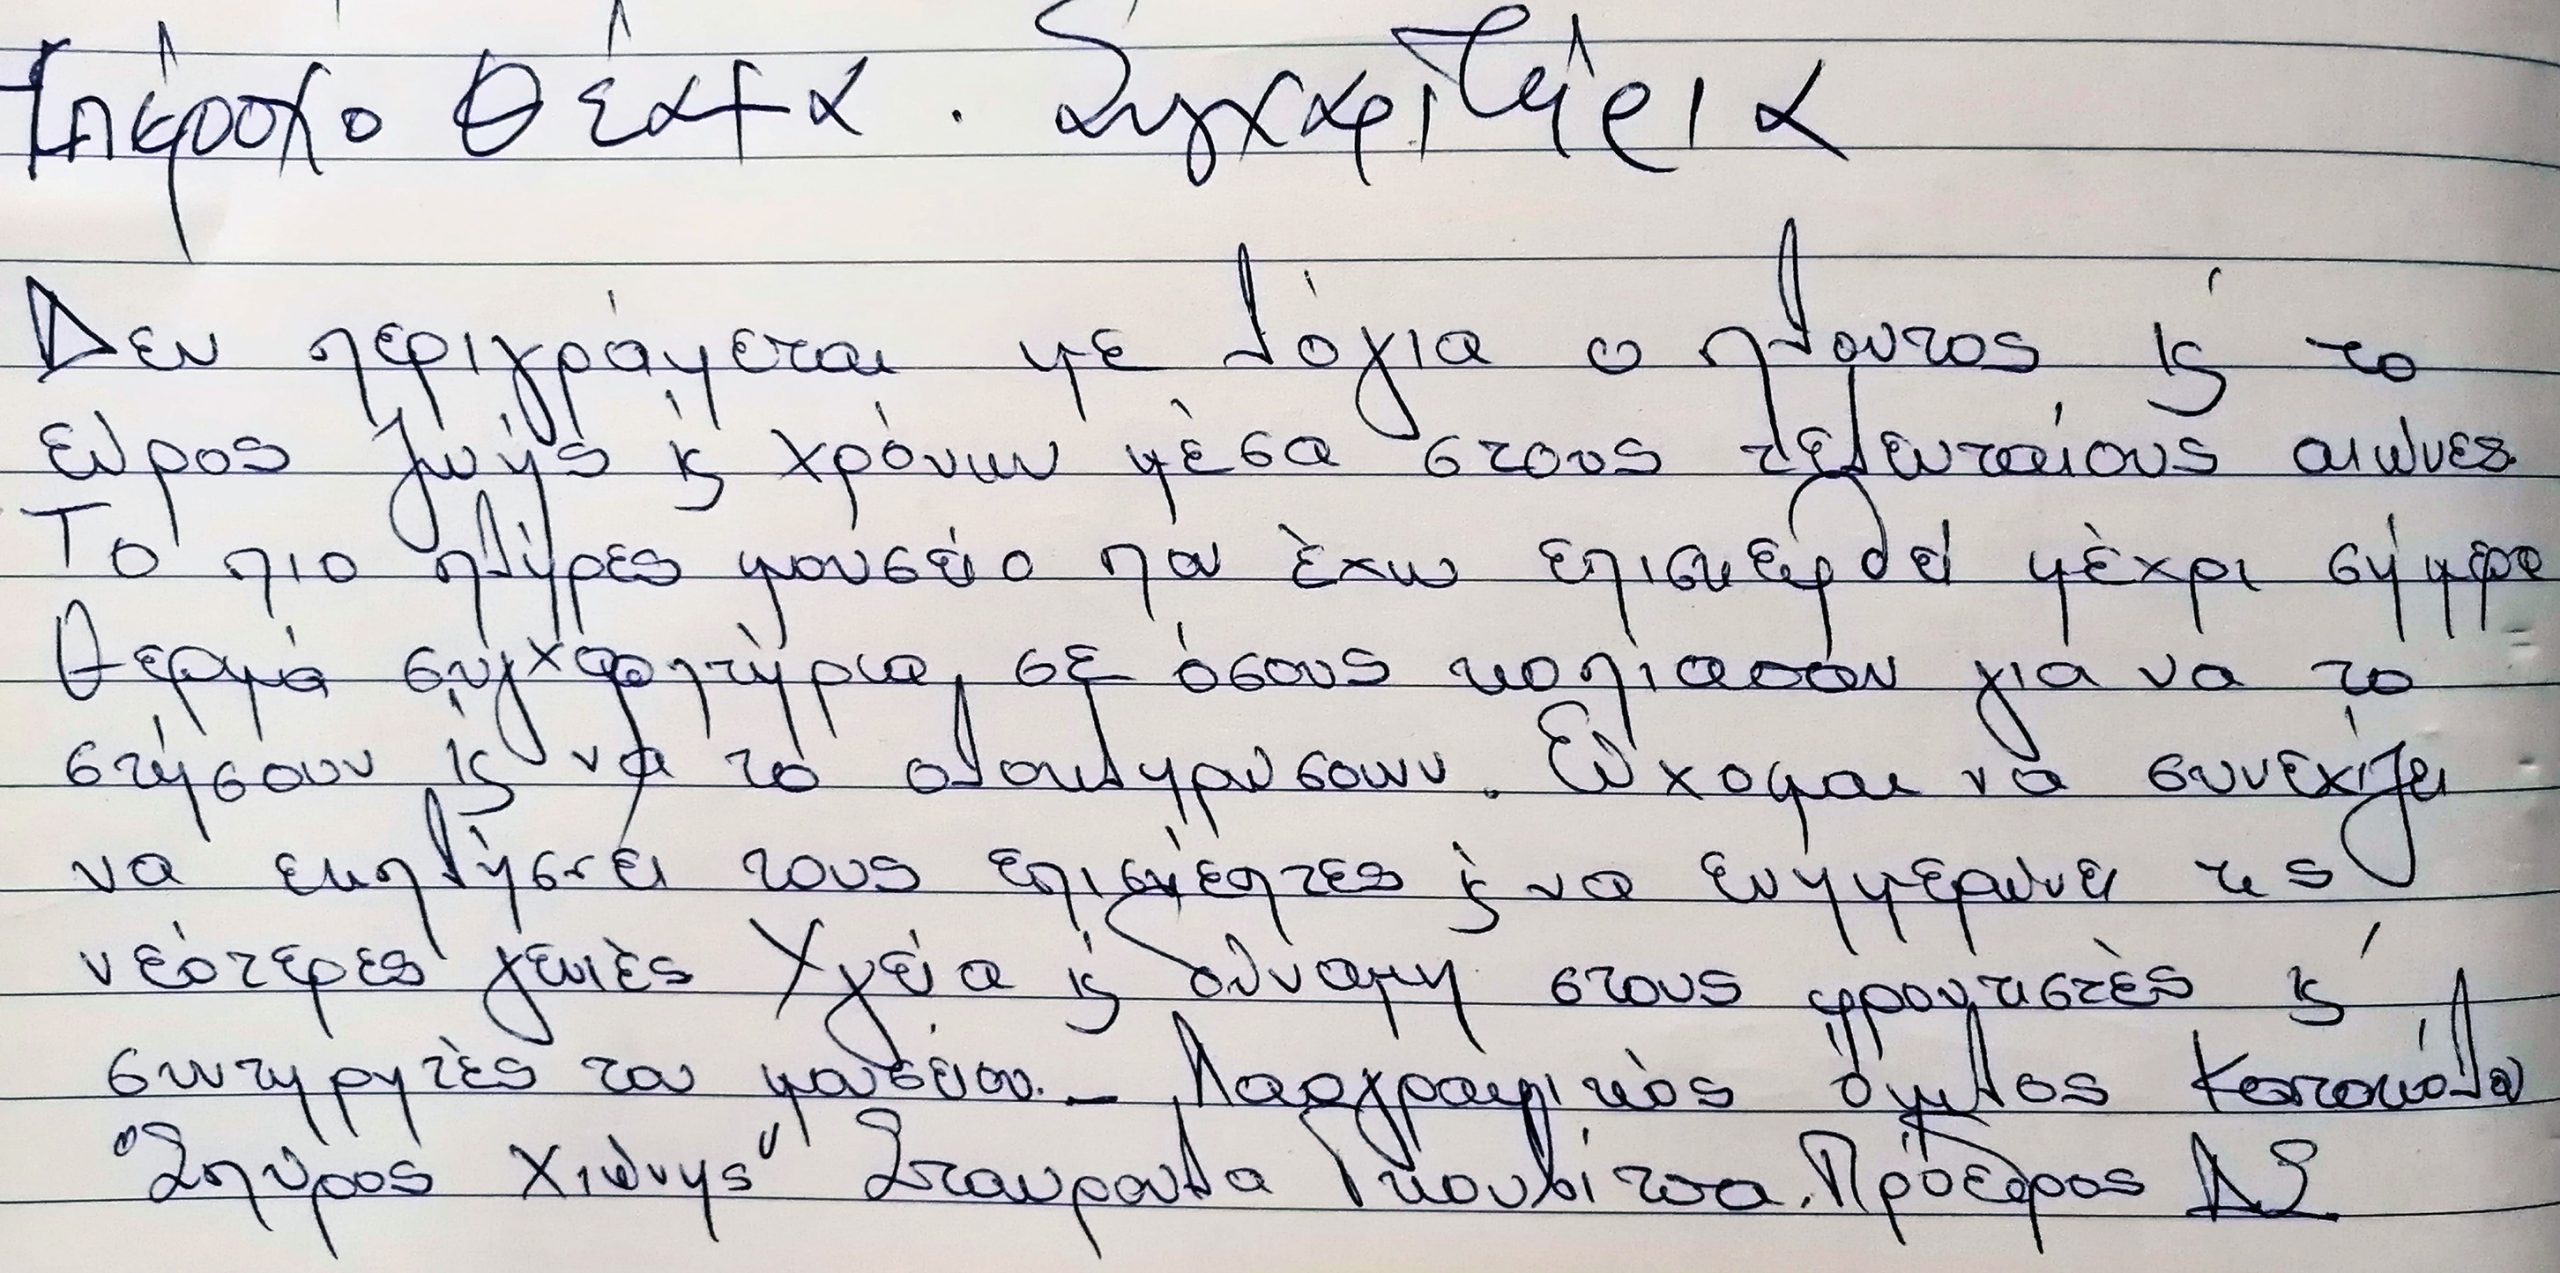 Υπέροχο θέαμα. Συγχαρητήρια
Δεν περιγράφεται με λόγια ο πλούτος κ' το
εύρος ζωής κ' χρόνων μέσα στους τελευταίους αιώνες.
Το πιο πλήρες μουσείο που έχω επισκεφθεί μέχρι σήμερα
Θερμά συγχαρητήρια, σε όσους κοπίασαν για να το
στήσουν κ' να το ολοκληρώσουν. Εύχομαι να συνεχίζει
να εκπλήσσει τους επισκέπτες κ' να ενημερώνει τις
νεότερες γενιές Υγεία κ' δύναμη στους φροντιστές κ'
συντηρητές του μουσείου. _ Λαογραφικός όμιλος
"Σπύρος Χιώνης" Σταυρούλα Πρόεδρος ΔΣ